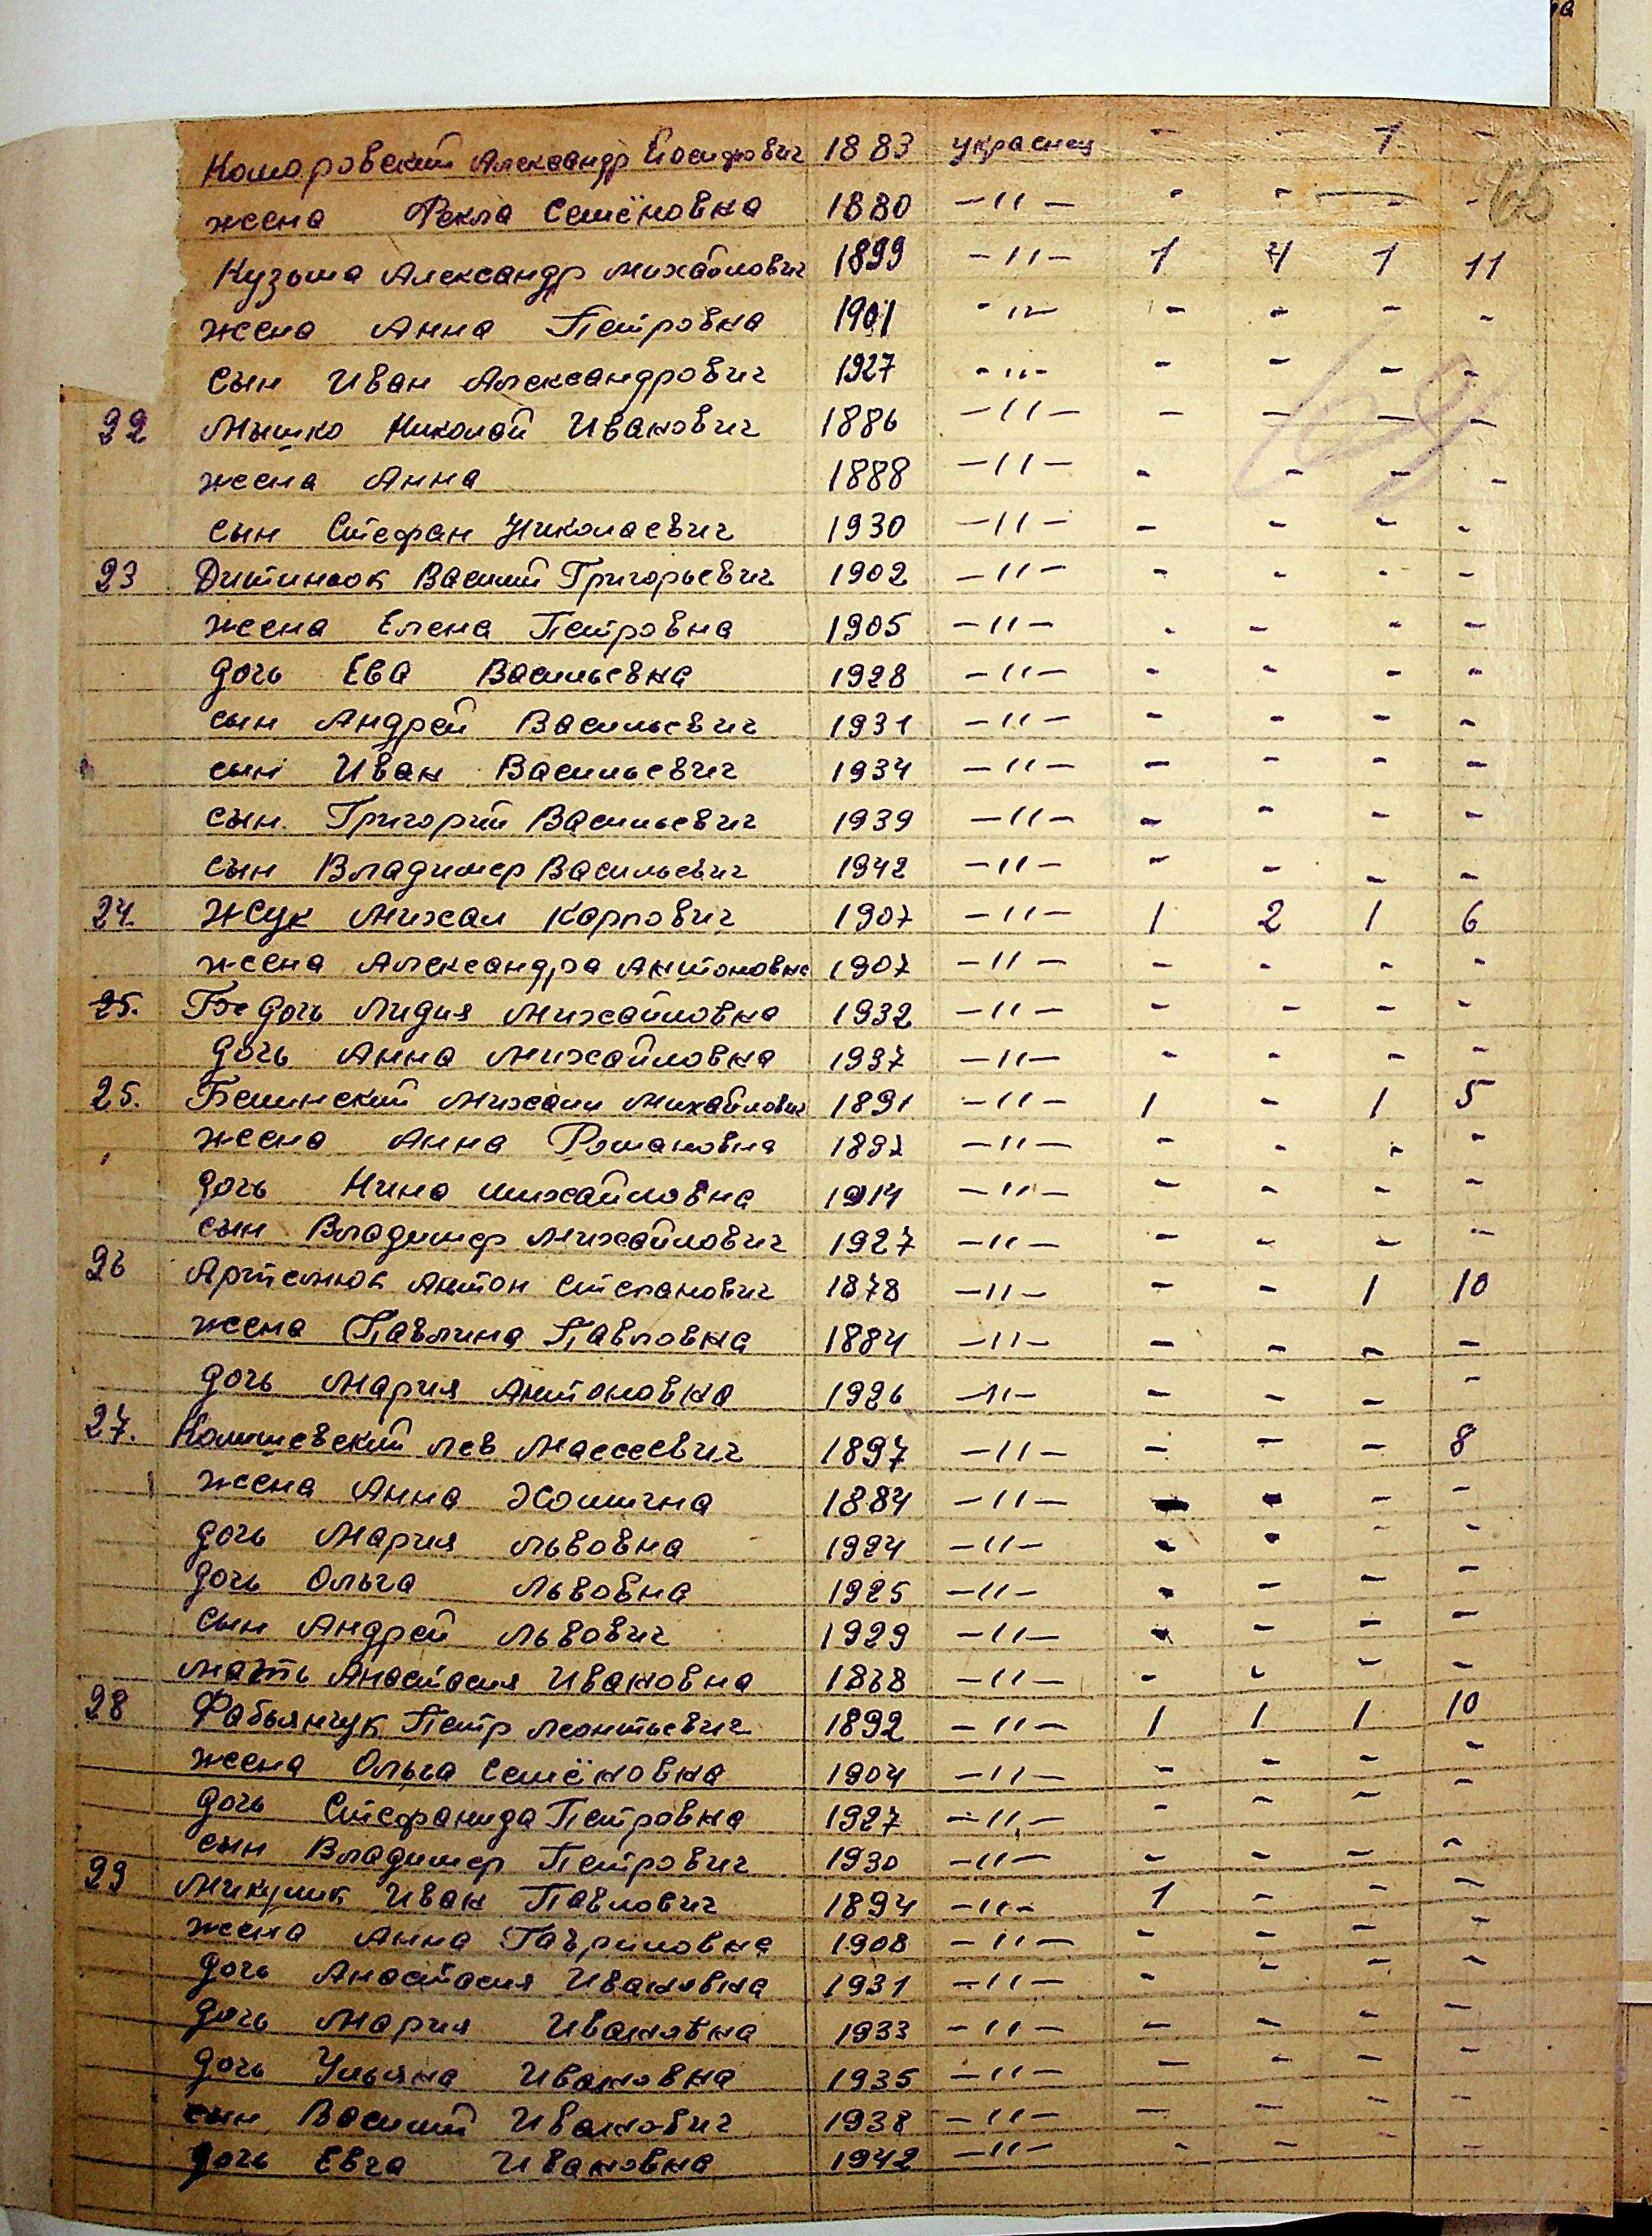 Комаровский Александр Йосифович 1883 украинец - - 1 -
65
жена Фекла Семёновка 1880 -//- - - - -
Кузьма Александр Михайлович 1899 -//- 1 4 1 11
жена Анна Петровка 1901 -//- - - - -
сын Иван Александрович 1927 -//- - - - -
22 Мышко Николай Иванович 1886 -//- - - - -
жена Анна 1888 -//- - - - -
сын Стефан Николаевич 1930 -//- - - - -
23 Дитинюк Василий Григорьевич 1902 -//- - - - -
жена Елена Петровна 1905 -//- - - - -
дочь Ева Васильевна 1928 -//- - - - -
сын Андрей Васильевич 1931 -//- - - - -
сын Иван Васильевич 1934 -//- - - - -
сын Григорий Васильевич 1939 -//- - - - -
сын Владимер Васильевич 1942 -//- - - - -
24. Жук Михал Карпович 1907 -//- 1 2 1 6
жена Александра Антоновна 1907 -//- - - - -
25. дочь Лидия Михайловна 1932 -//- - - - -
дочь Анна Михайловна 1937 -//- - - - -
25. Михаил Михайлович 1891 -//- 1 - 1 5
жена Анна Романовна 1897 -//- - - - -
дочь Нина Михайловна 1914 -//- - - - -
сын Владимер Михайлович 1927 -//- - - - -
26 Артемюк Антон Степанович 1878 -//- - - 1 10
жена Павлина Павловна 1884 -//- - - - -
дочь Мария Антоновна 1926 -//- - - - -
27. Лев 1897 -//- - - - 8
жена Анна Хомична 1884 -//- - - - -
дочь Мария Львовна 1924 -//- - - - -
дочь Ольга Львовна 1925 -//- - - - -
сын Андрей Львович 1929 -//- - - - -
мать Анастасия Ивановна -//- - - - -
28 Фабьянчук Петр Леонтьевич 1892 -//- 1 1 1 10
жена Ольга Семёновна 1904 -//- - - - -
дочь Стефанида Петровна 1927 -//- - - - -
сын Владимер Петрович 1930 -//- - - - -
29 Микулик Иван Павлович 1894 -//- 1 - - -
жена Анна Гавриловна 1908 -//- - - - -
дочь Анастасия Ивановна 1931 -//- - - - -
дочь Мария Ивановна 1933 -//- - - - -
дочь Ульяна Ивановна 1935 -//- - - - -
сын Василий Иванович 1938 -//- - - - -
дочь Евга Ивановна 1942 -//- - - - -